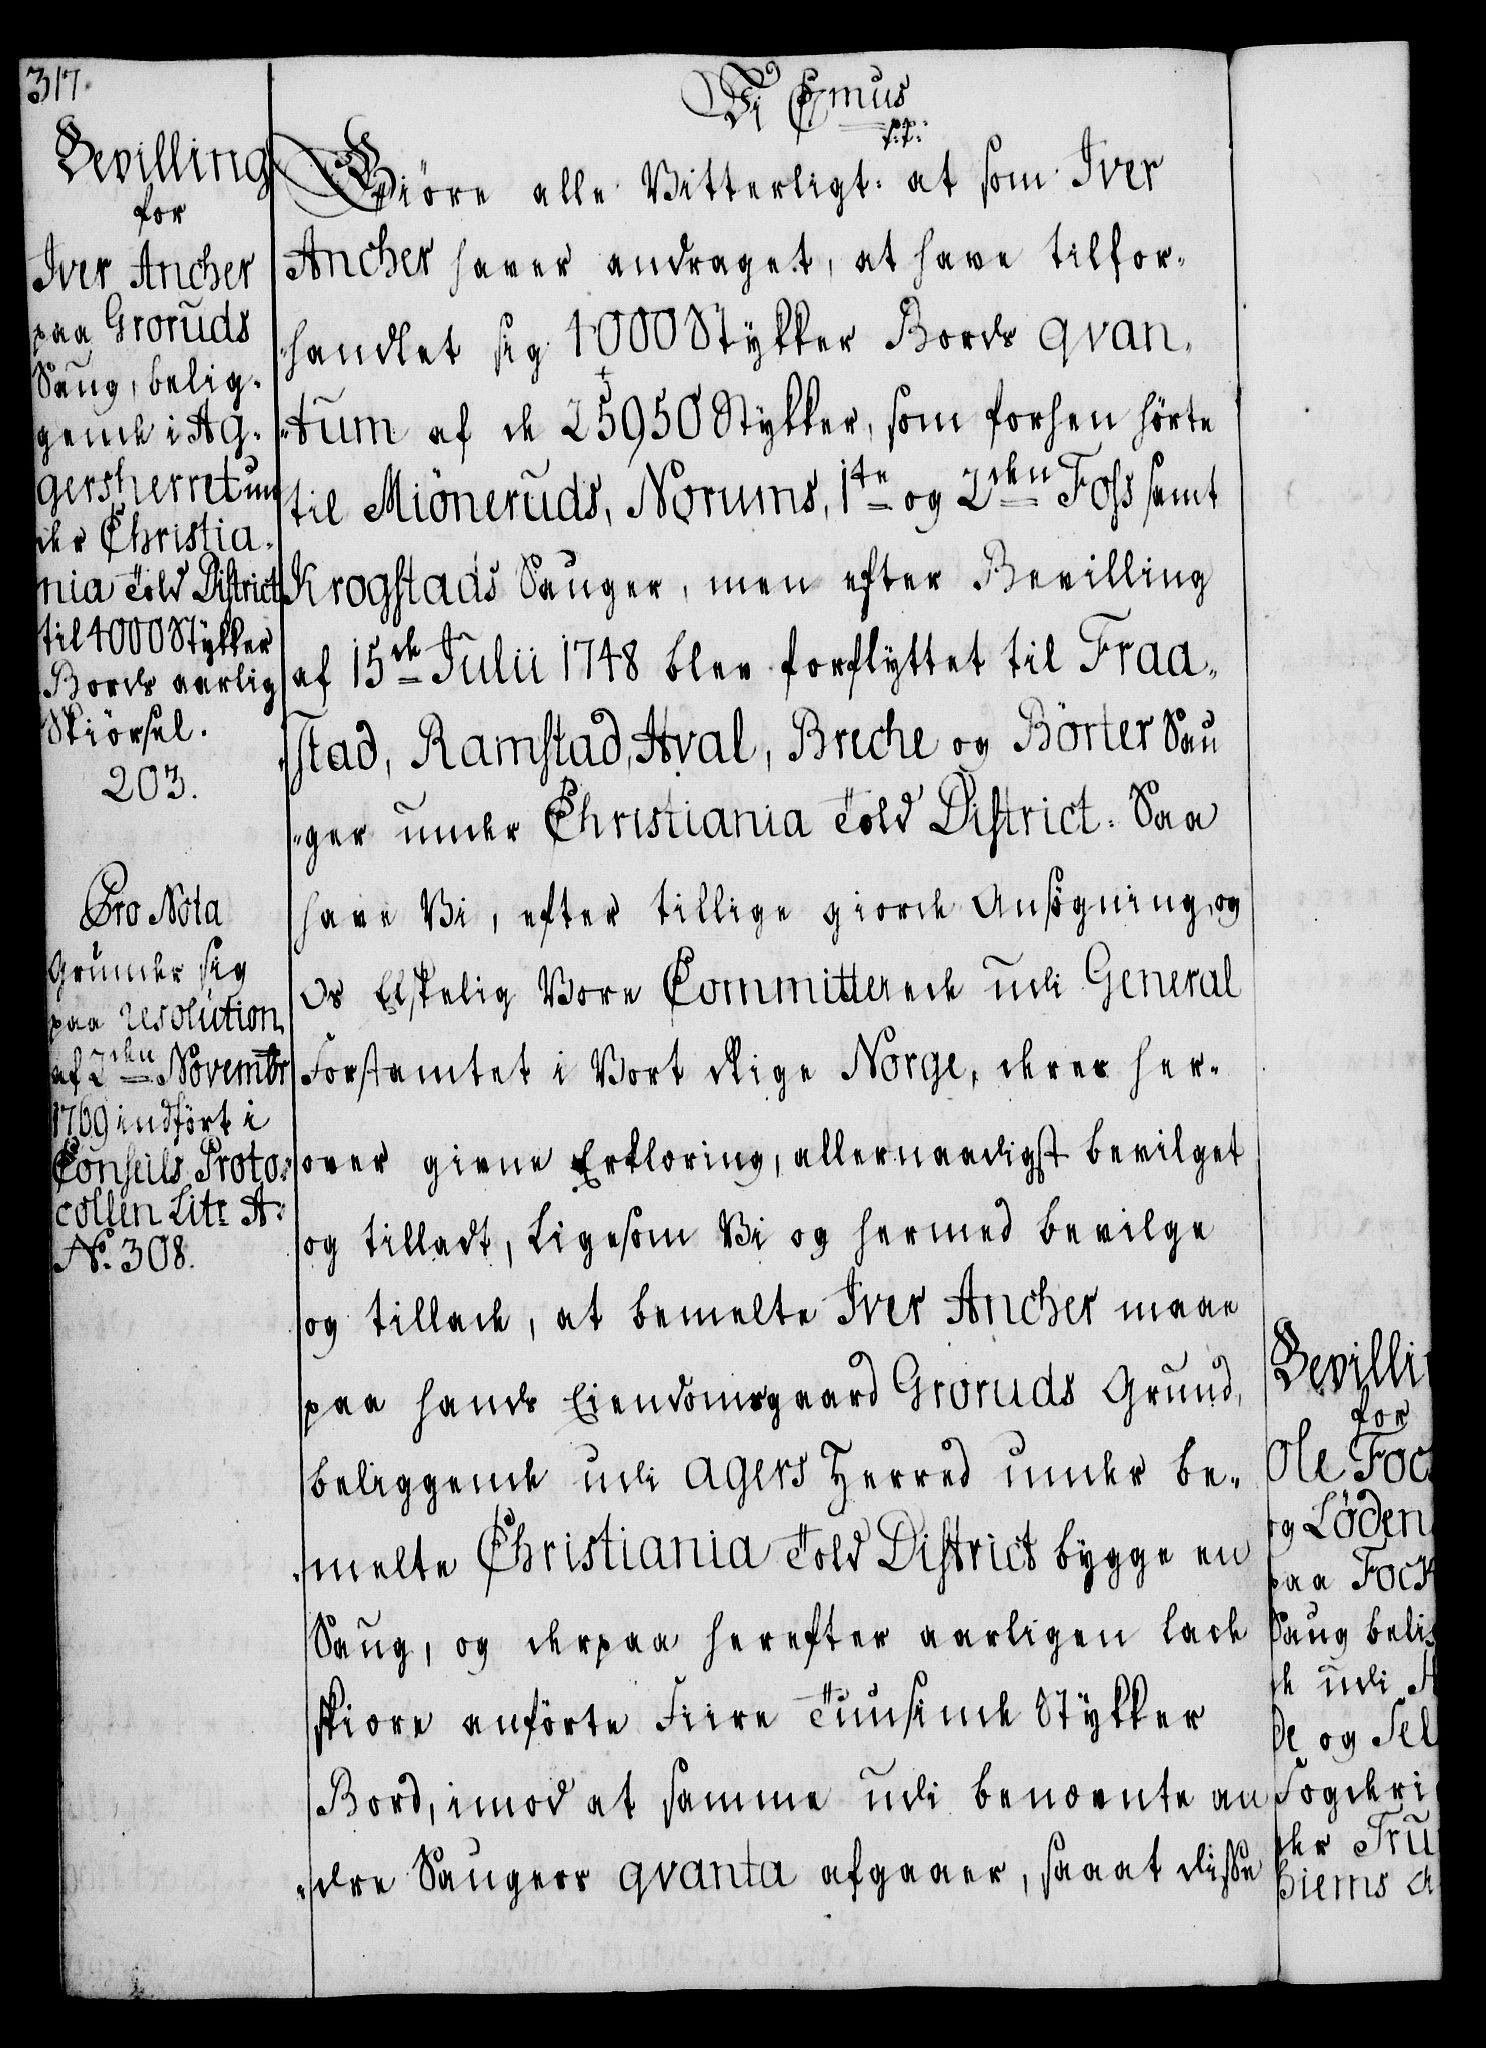 317.
Bevilling
for
Iver Ancher
paa Groruds
Saug, belig-
gende i Ag-
gersherret un
der Christia-
nia Told District
til 4000 Stykker
Bords aarlig
Skiörsel.
203.
Pro Nota
Grunder sig
paa resolution
af 2den Novembr
1769 indfört i
Conseils Proto-
collen Litr A.
No. 308.
Vi C7mus
s: t:
Giöre alle Vitterligt: at som Iver
Ancher haver andraget, at have tilfor-
handlet sig 4000 Stykker Bords qvan-
tum af de 25950 Stykker, som forhen hörte
til Miöneruds, Norums, 1te og 2den Foss samt
Krogstads Sauger, men efter Bevilling
af 15de Julii 1748 blev forflyttet til Fraa-
stad, Ramstad, Hval, Breche og Börter Sau
ger under Christiania Told District. Saa
have Vi, efter tillige giorde Ansögning, og
Os Elskelig Vore Committerede udi General
Forstamtet i Vort Rige Norge, deres her-
over givne Erklæring, allernaadigst bevilget
og tilladt, Ligesom Vi og hermed bevilge
og tillade, at bemelte Iver Ancher maae
paa hands Eiendomsgaard Groruds Grund,
beliggende udi Agers Herred under be-
melte Christiania Told District bygge en
Saug, og derpaa herefter aarligen lade
skiære anförte Fiire Tuusinde Stykker
Bord, imod at samme udi benævnte an
dre Saugers qvanta afgaaer, saaat disse
Bevilli
for
Ole Foc
og Löden
paa Fock
Saug beli
de udi
de og Sel
Fogderi
der Tru
hiems A